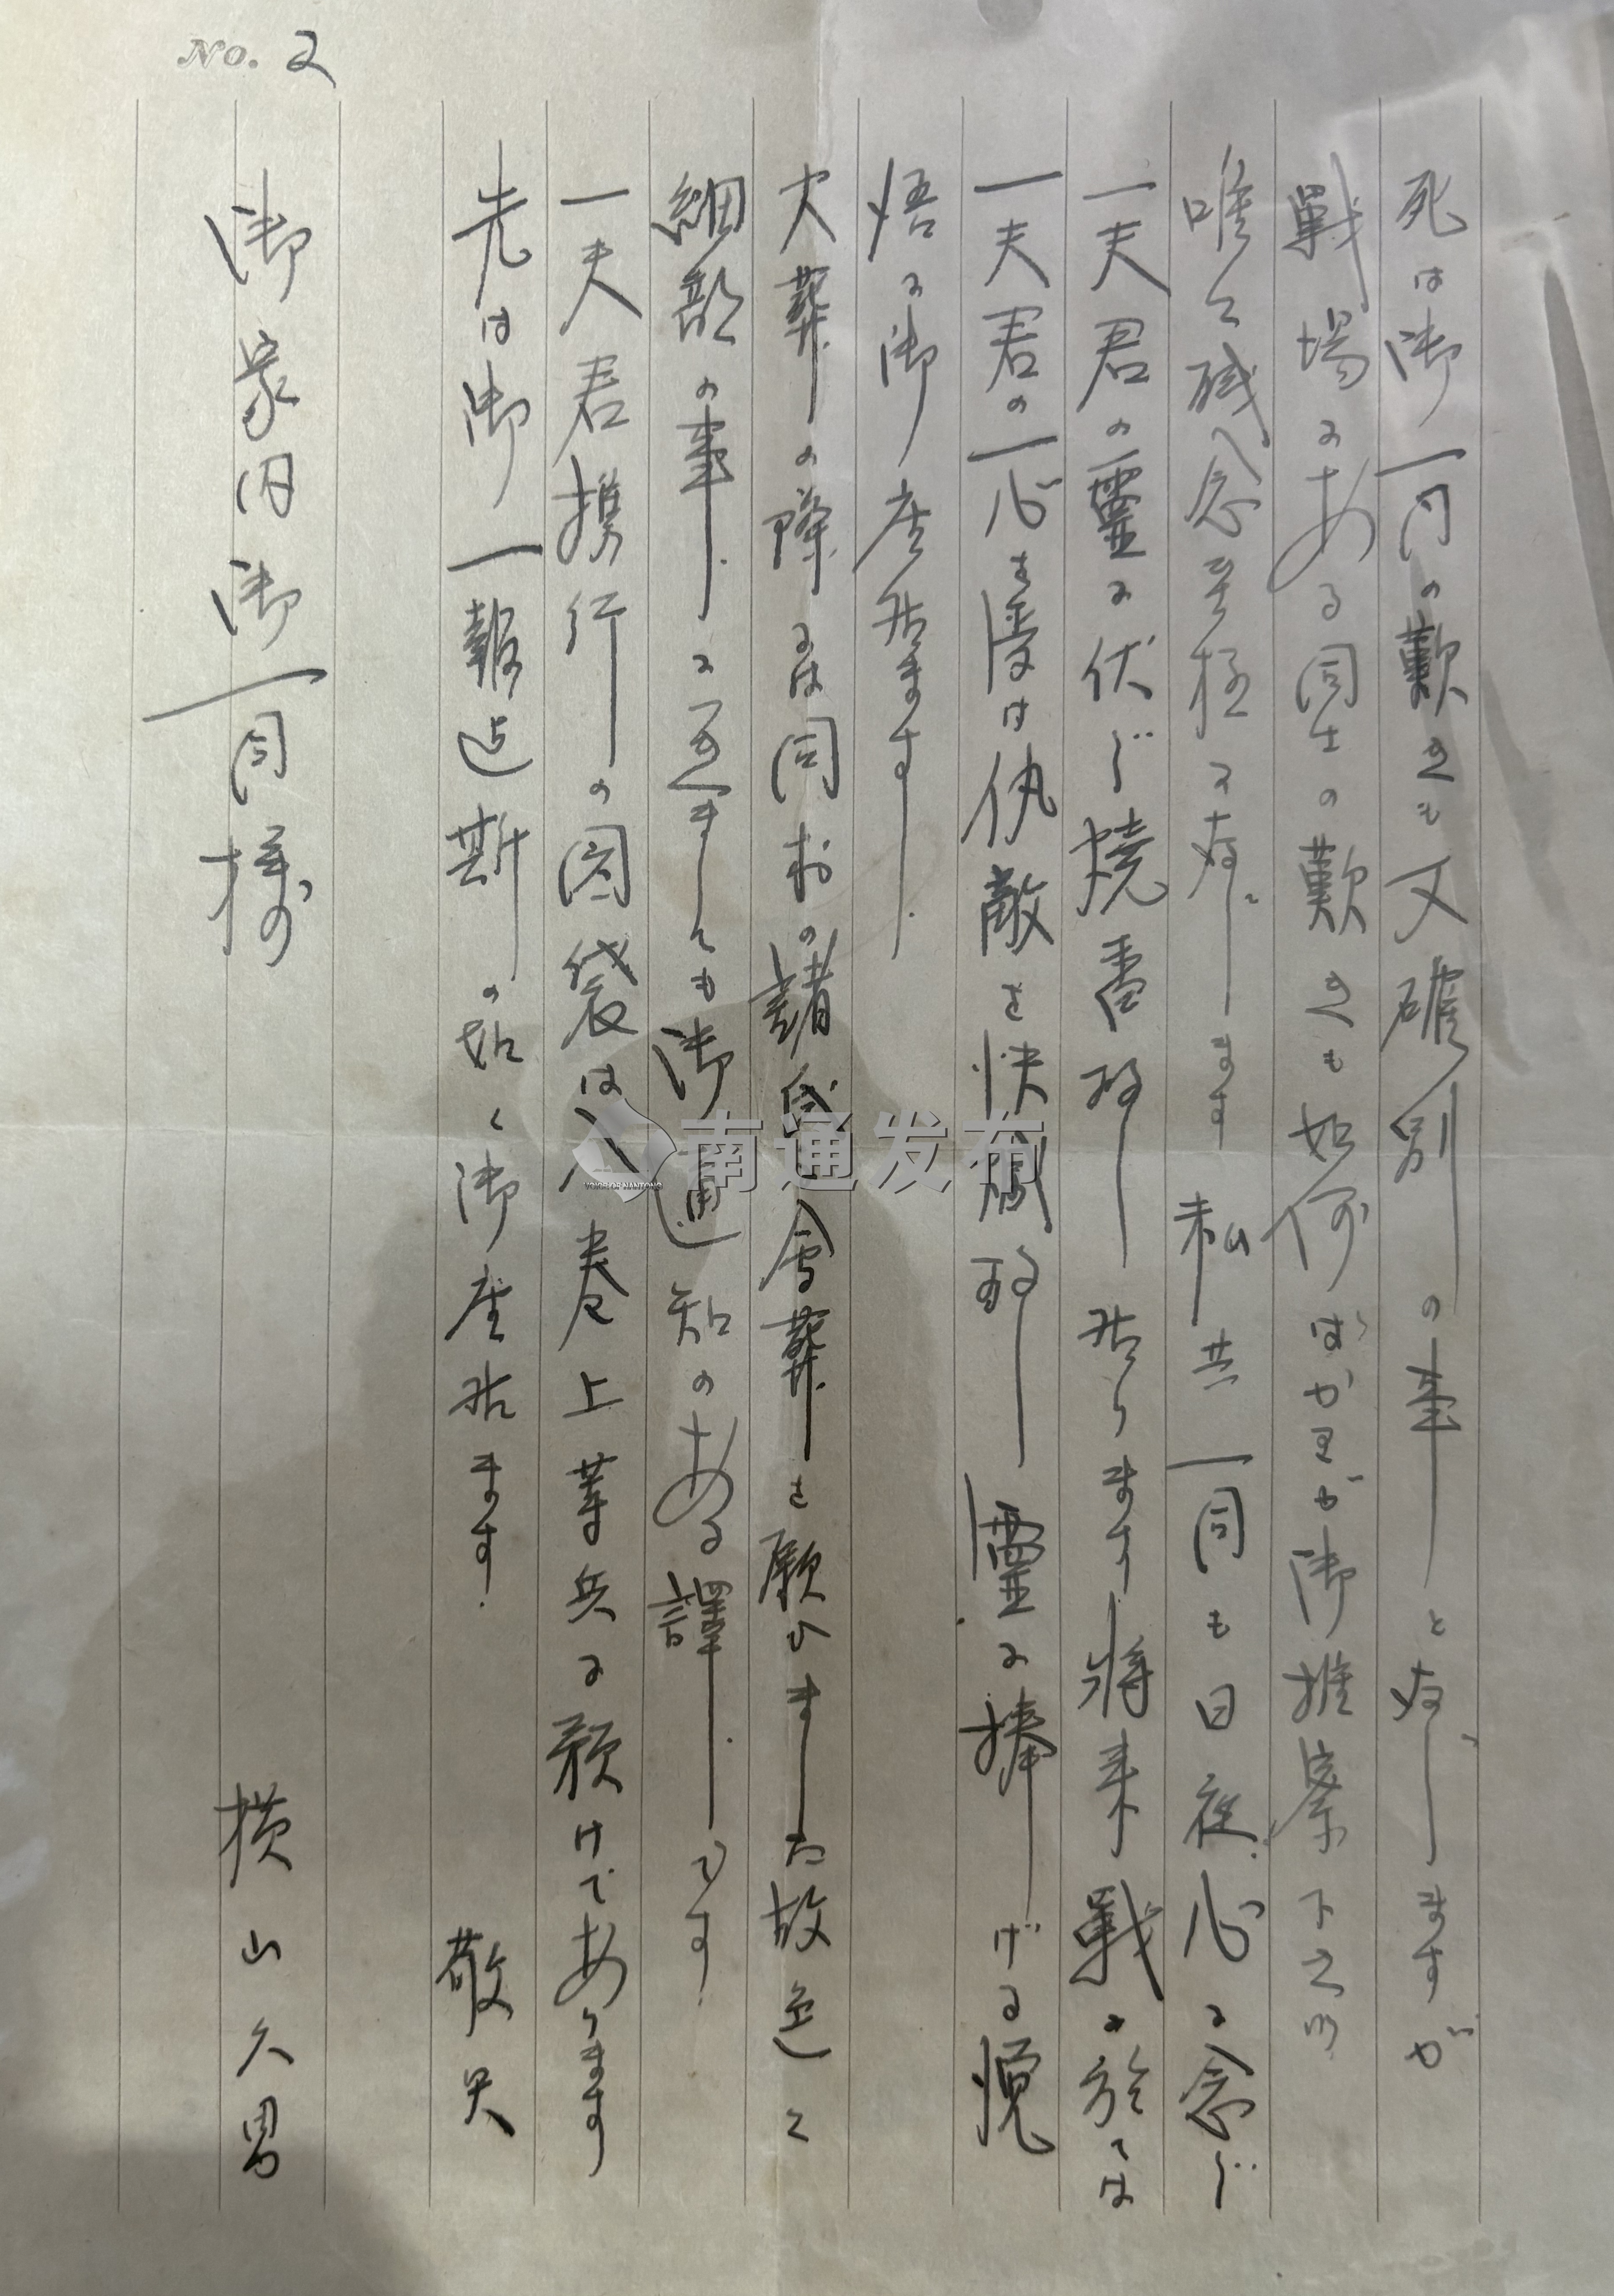 No. 2
死は御一同の歎きも又確別の事と存じますが
戦場にある同士の歎きも如何ばかりか御推察下さい
唯々残念至極に存じます 私共一同も日夜心に念じ
一夫君の靈に伏し焼香致し居ります将来戦に於ては
一夫君の一心を受け仇敵を快滅致し靈に捧げる覚
悟に御座居ます
火葬の際には同村の諸氏会葬を願ひました故追々
細部の事に至ましても御通知のある譯です
一夫君携行の図袋は八巻上等兵に預けてあります
先は御一報迄斯の如く御座居ます 敬具
横山久男
御家内御一同様
南通发布
VOICE OF NANTONG